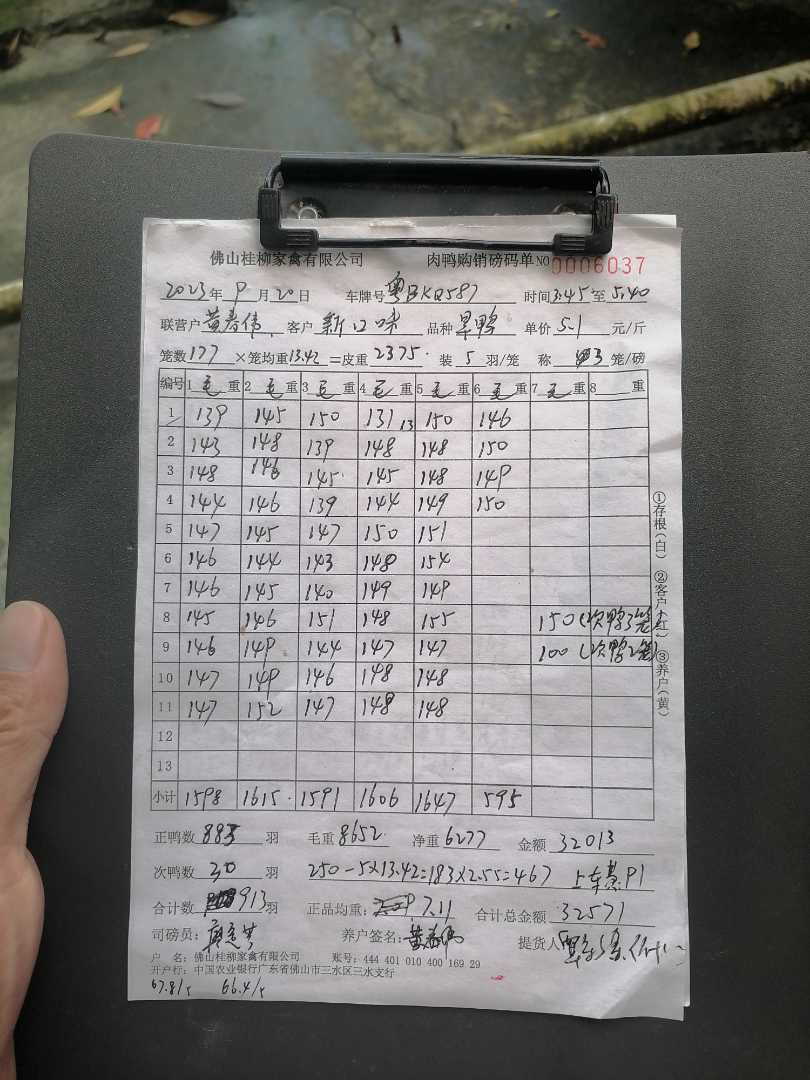 佛山桂柳家禽有限公司 肉鸭购销磅码单 NO 0006037
2023年 9月20日 车牌号 粤BKQ587 时间 3.45 至 5.40
联营户 黄春伟 客户 新口味 品种 旱鸭 单价 5.1 元/斤
笼数 177 ×笼均重 13.42 =皮重 2375. 装 5 羽/笼 称 3 笼/磅
编号 1 毛 重 2 毛 重 3 毛 重 4 毛 重 5 毛 重 6 毛 重 7 毛 重 8 重
1 139 145 150 131 13 150 146
2 143 148 139 148 148 150
3 148 146 145. 145 148 149
4 144 146 139 144 149 150
5 147 145 147 150 151
6 146 144 143 148 154
7 146 145 140 149 149
8 145 146 151 148 155 150 (次鸭3笼)
9 146 149 144 147 147 100 (次鸭2笼)
10 147 149 146 148 148
11 147 152 147 148 148
12
13
小计 1598 1615. 1591 1606 1647 595
①存根(白) ②客户(红) ③养户(黄)
正鸭数 883 羽 毛重 8652. 净重 6277 金额 32013
次鸭数 30 羽 250-5×13.42=183×2.55=467 上车 91
合计数 913 羽 正品均重: 7.11 合计总金额 32571
司磅员: 养户签名: 黄春伟 提货人
户 名: 佛山桂柳家禽有限公司 账号: 444 401 010 400 169 29
开户行: 中国农业银行广东省佛山市三水区三水支行
67.8/5 66.4/5